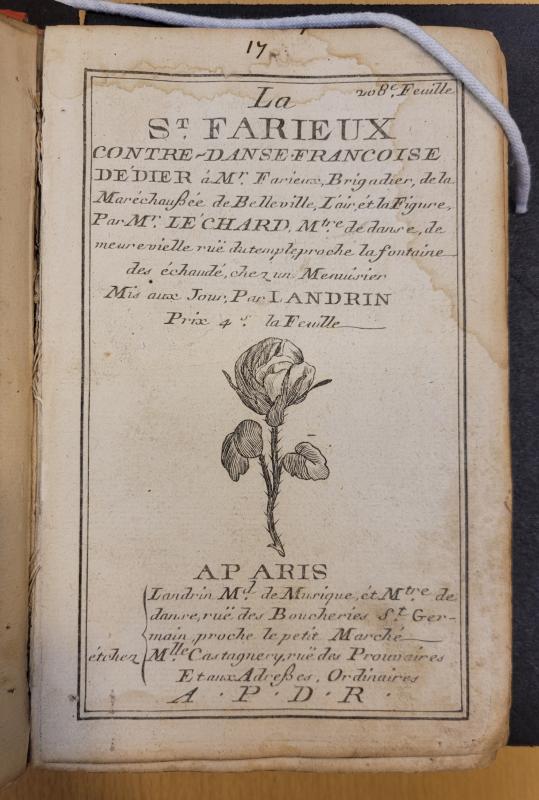 17
208e. Feuille
La
ST. FARIEUX
CONTRE-DANSE-FRANCOISE
DÉDIER á Mr. Farieux, Brigadier, de la
Maréchaußée de Belleville, L'air, ét la Figure,
Par Mr. LÉCHARD, Mtre de danse, de
meure vielle ruë du temple proche la fontaine
des échaudé, chez un Menuisier
Mis aux Jour, Par LANDRIN
Prix 4 s. la Feuille
AP ARIS
Landrin Md. de Musique, ét Mtre de
danse, ruë des Boucheries St. Ger-
main, proche le petit Marché
ét chez Mlle Castagnery, ruë des Prouvaires
Et aux Adreßes, Ordinaires
A. P. D. R.